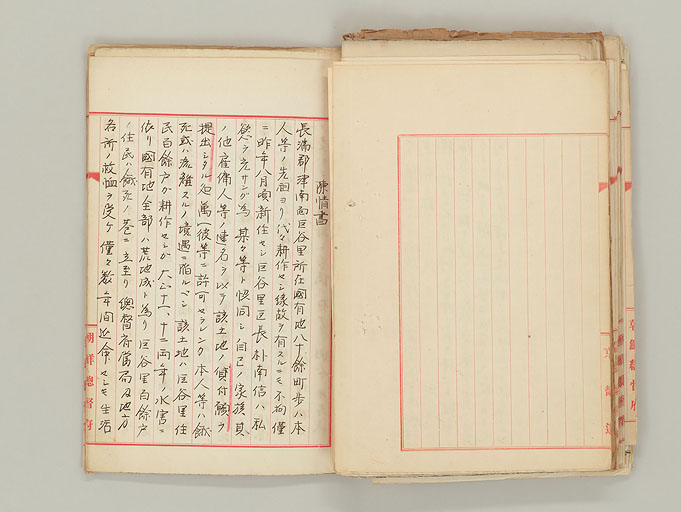 陳情書
長満郡津南面巨谷里所在國有地八十餘町歩ハ本
人等ノ先祖ヨリ代々耕作セシ縁故ヲ有スルニモ不拘僅
ニ昨年八月頃新任セシ巨谷里区長朴南信ハ私
慾ヲ充サンガ為メ某々等ト協同シ自己ノ家族其
ノ他雇傭人等ノ連名ヲ以テ該土地ノ貸付願ヲ
提出シタル 万一彼等ニ許可セラレンカ本人等ハ餓
死或ハ流離スルノ境遇ニ陥ルベシ 該土地ハ巨谷里住
民百餘戸ガ耕作セシガ 十一、十二両年ノ水害ニ
依リ國有地全部ハ荒地成ト為リ巨谷里百餘戸
ノ住民ハ餓死ノ巷ニ立至リ總督府當局及地方
名所ノ救恤ヲ受ケ僅々数年間延命セシモ生活
朝鮮總督府